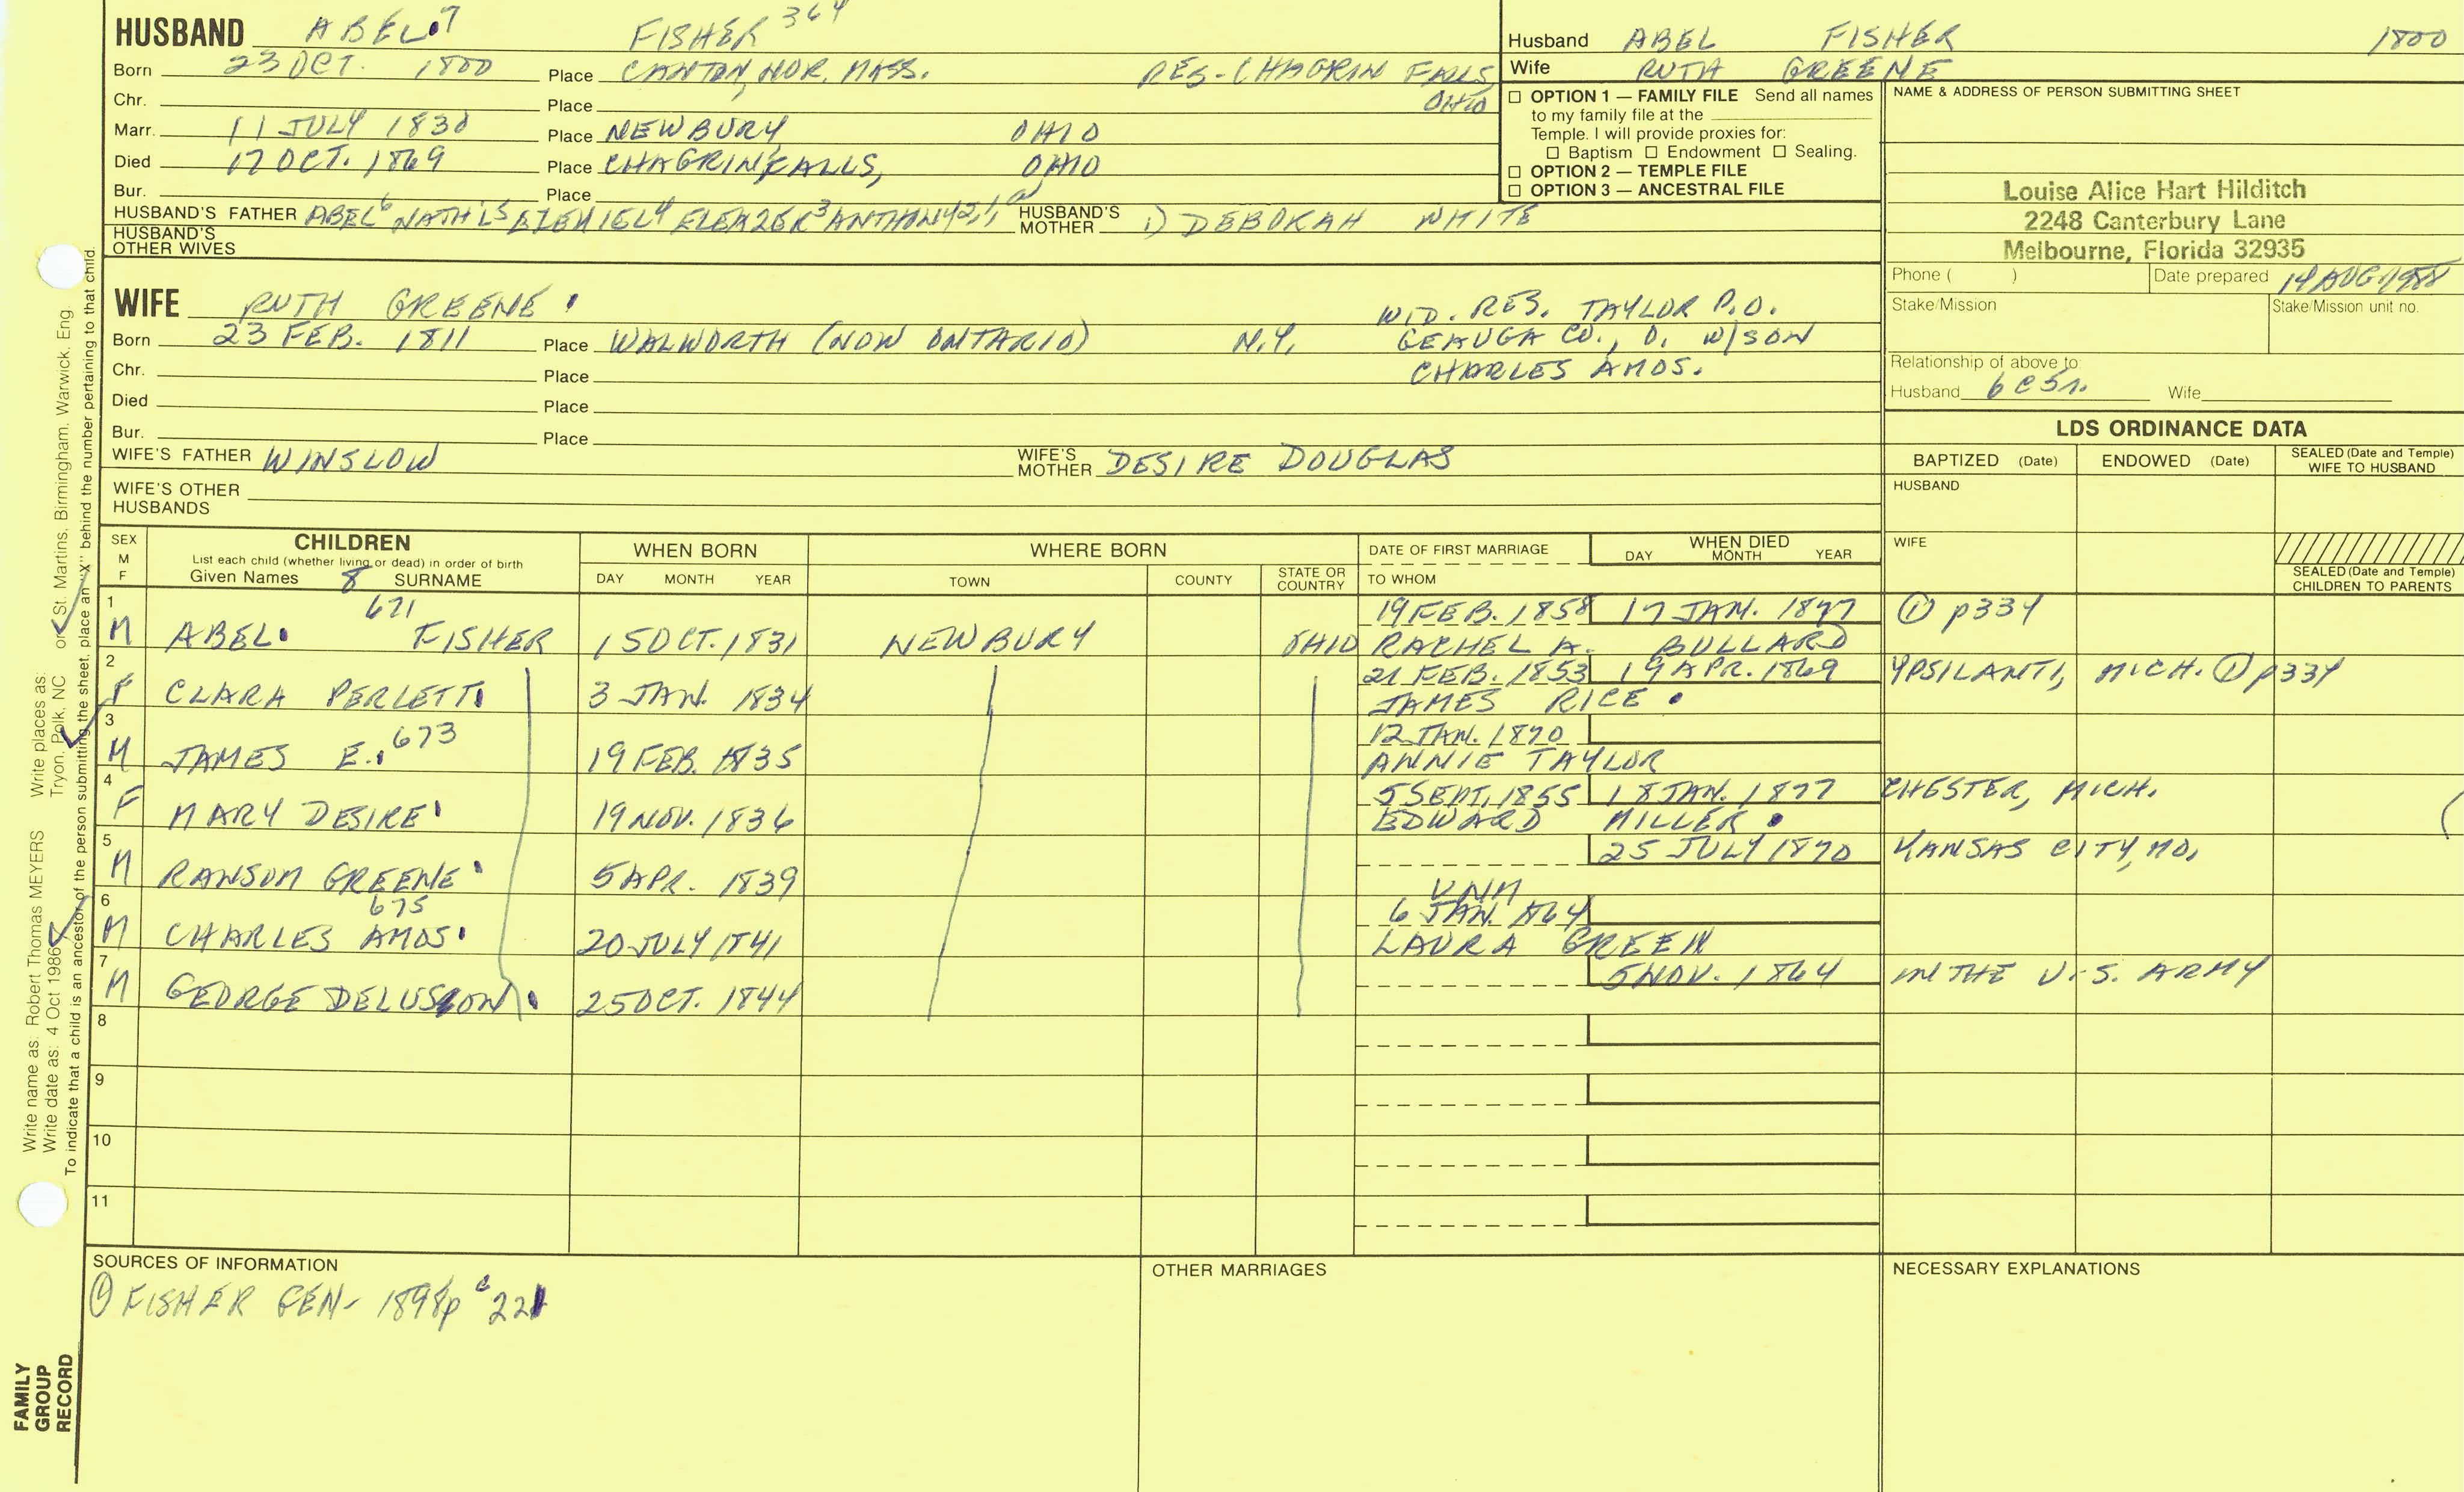 HUSBAND ABEL 7 FISHER 364
Born 23 OCT. 1800 Place CANTON, NOR. MASS. RES-CHAGRIN FALLS, OHIO
Chr. Place
Marr. 11 JULY 1830 Place NEWBURY OHIO
Died 17 OCT. 1869 Place CHAGRIN FALLS, OHIO
Bur. Place
HUSBAND'S FATHER ABEL 6 NATH'L 5 EZEKIEL 4 ELEAZER 3 ANTHONY 2,1 HUSBAND'S MOTHER 1) DEBORAH WHITE
HUSBAND'S OTHER WIVES
Husband ABEL FISHER 1800
Wife RUTH GREENE
☐ OPTION 1 — FAMILY FILE Send all names
to my family file at the
Temple. I will provide proxies for:
☐ Baptism ☐ Endowment ☐ Sealing.
☐ OPTION 2 — TEMPLE FILE
☐ OPTION 3 — ANCESTRAL FILE
NAME & ADDRESS OF PERSON SUBMITTING SHEET
Louise Alice Hart Hilditch
2248 Canterbury Lane
Melbourne, Florida 32935
Phone ( ) Date prepared 14 AUG 1988
Stake/Mission Stake/Mission unit no.
Relationship of above to:
Husband 6C5r. Wife
WIFE RUTH GREENE
WID. RES. TAYLOR P.O.
GEAUGA CO., O. W/SON
CHARLES AMOS.
Born 23 FEB. 1811 Place WALWORTH (NOW ONTARIO) N.Y.
Chr. Place
Died Place
Bur. Place
WIFE'S FATHER WINSLOW WIFE'S MOTHER DESIRE DOUGLAS
WIFE'S OTHER HUSBANDS
LDS ORDINANCE DATA
BAPTIZED (Date) ENDOWED (Date) SEALED (Date and Temple) WIFE TO HUSBAND
HUSBAND
WIFE
SEALED (Date and Temple) CHILDREN TO PARENTS
SEX M F
CHILDREN
List each child (whether living or dead) in order of birth
Given Names 8 SURNAME
WHEN BORN
DAY MONTH YEAR
WHERE BORN
TOWN COUNTY STATE OR COUNTRY
DATE OF FIRST MARRIAGE
TO WHOM
WHEN DIED
DAY MONTH YEAR
1 M ABEL 671 FISHER 15 OCT. 1831 NEWBURY OHIO 19 FEB. 1858 17 JAN. 1877 ① p334
RACHEL A. BULLARD
2 F CLARA PERLETT 3 JAN. 1834 21 FEB. 1853 19 APR. 1869 YPSILANTI, MICH. ① p334
JAMES RICE
3 M JAMES E. 673 19 FEB. 1835 12 JAN. 1870
ANNIE TAYLOR
4 F MARY DESIRE 19 NOV. 1836 5 SEPT. 1855 18 JAN. 1877 CHESTER, MICH.
EDWARD MILLER
5 M RANSOM GREENE 5 APR. 1839 25 JULY 1870 KANSAS CITY, MO.
UNM
6 M CHARLES AMOS 675 20 JULY 1841 6 JAN. 1864
LAURA GREEN
7 M GEORGE DELUSSON 25 OCT. 1844 5 NOV. 1864 IN THE U.S. ARMY
8
9
10
11
SOURCES OF INFORMATION
① FISHER GEN- 1898 p 221
OTHER MARRIAGES
NECESSARY EXPLANATIONS
Write name as: Robert Thomas MEYERS Write places as: Tryon, Polk, NC or St. Martins, Birmingham, Warwick, Eng.
Write date as: 4 Oct 1986
To indicate that a child is an ancestor of the person submitting the sheet, place an "X" behind the number pertaining to that child.
FAMILY
GROUP
RECORD